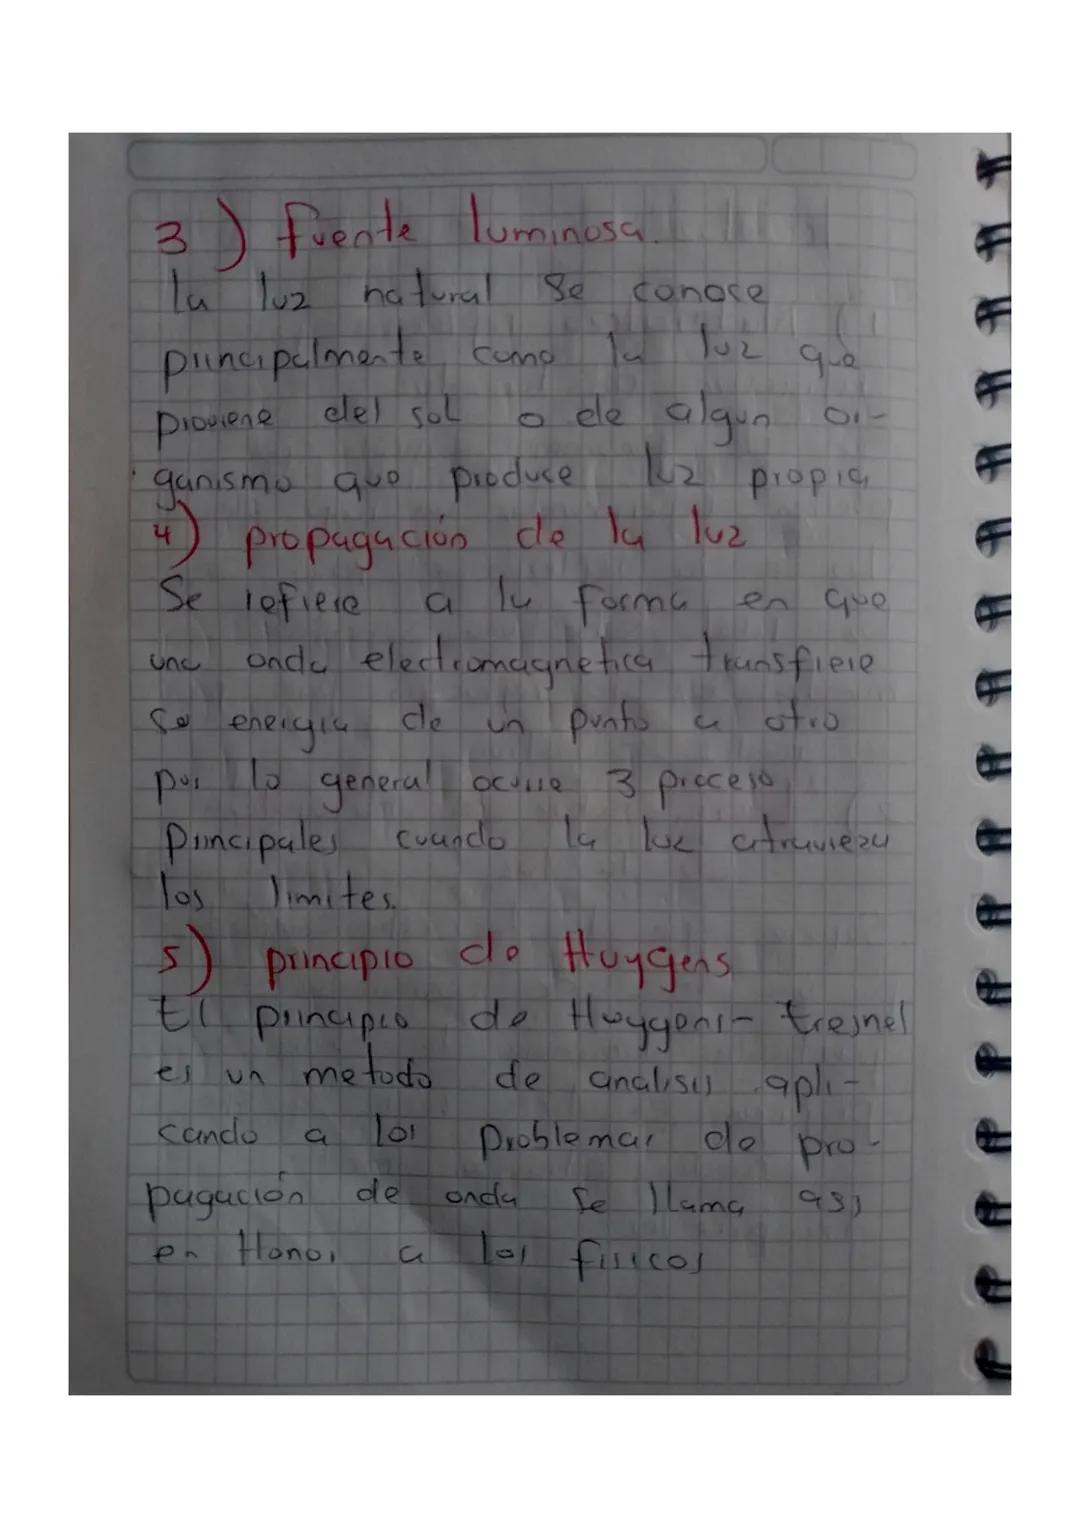 3) fuente luminosa.
La luz natural se conose
principalmente como la luz que
proviene del sol o de algun or-
ganismo que produce luz propia
4) propagación de la luz
Se refiere a la forma en que
una onda electromagnetica transfiere
su energia de un punto a otro
por lo general ocurre 3 proceso
principales cuando la luz atravieza
los limites.
5) principio de Huygens
El principio de Huygens-fresnel
es un metodo de analisis apli-
cando a los problemas de pro-
pagación de onda se llama asi
en Honor a los fisicos